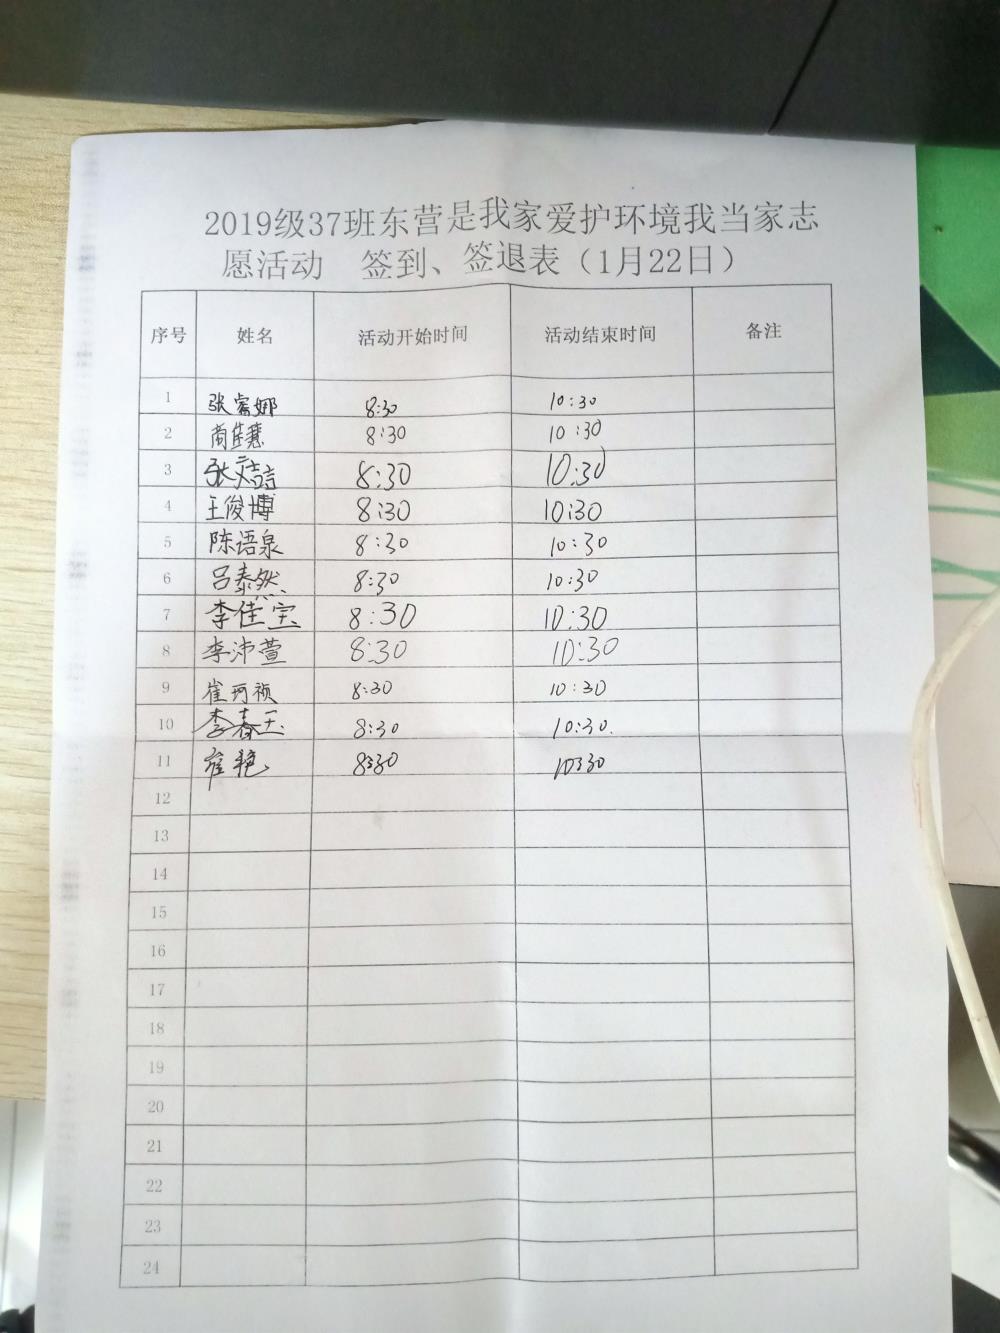 2019级37班东营是我家爱护环境我当家志
愿活动 签到、签退表（1月22日）
序号 姓名 活动开始时间 活动结束时间 备注
1 张睿娜 8:30 10:30
2 商佳慧 8:30 10:30
3 张文喆 8:30 10:30
4 王俊博 8:30 10:30
5 陈语泉 8:30 10:30
6 吕泰然 8:30 10:30
7 李佳宝 8:30 10:30
8 李沛萱 8:30 10:30
9 崔珂祯 8:30 10:30
10 李春玉 8:30 10:30.
11 崔艳 8:30 10:30
12
13
14
15
16
17
18
19
20
21
22
23
24